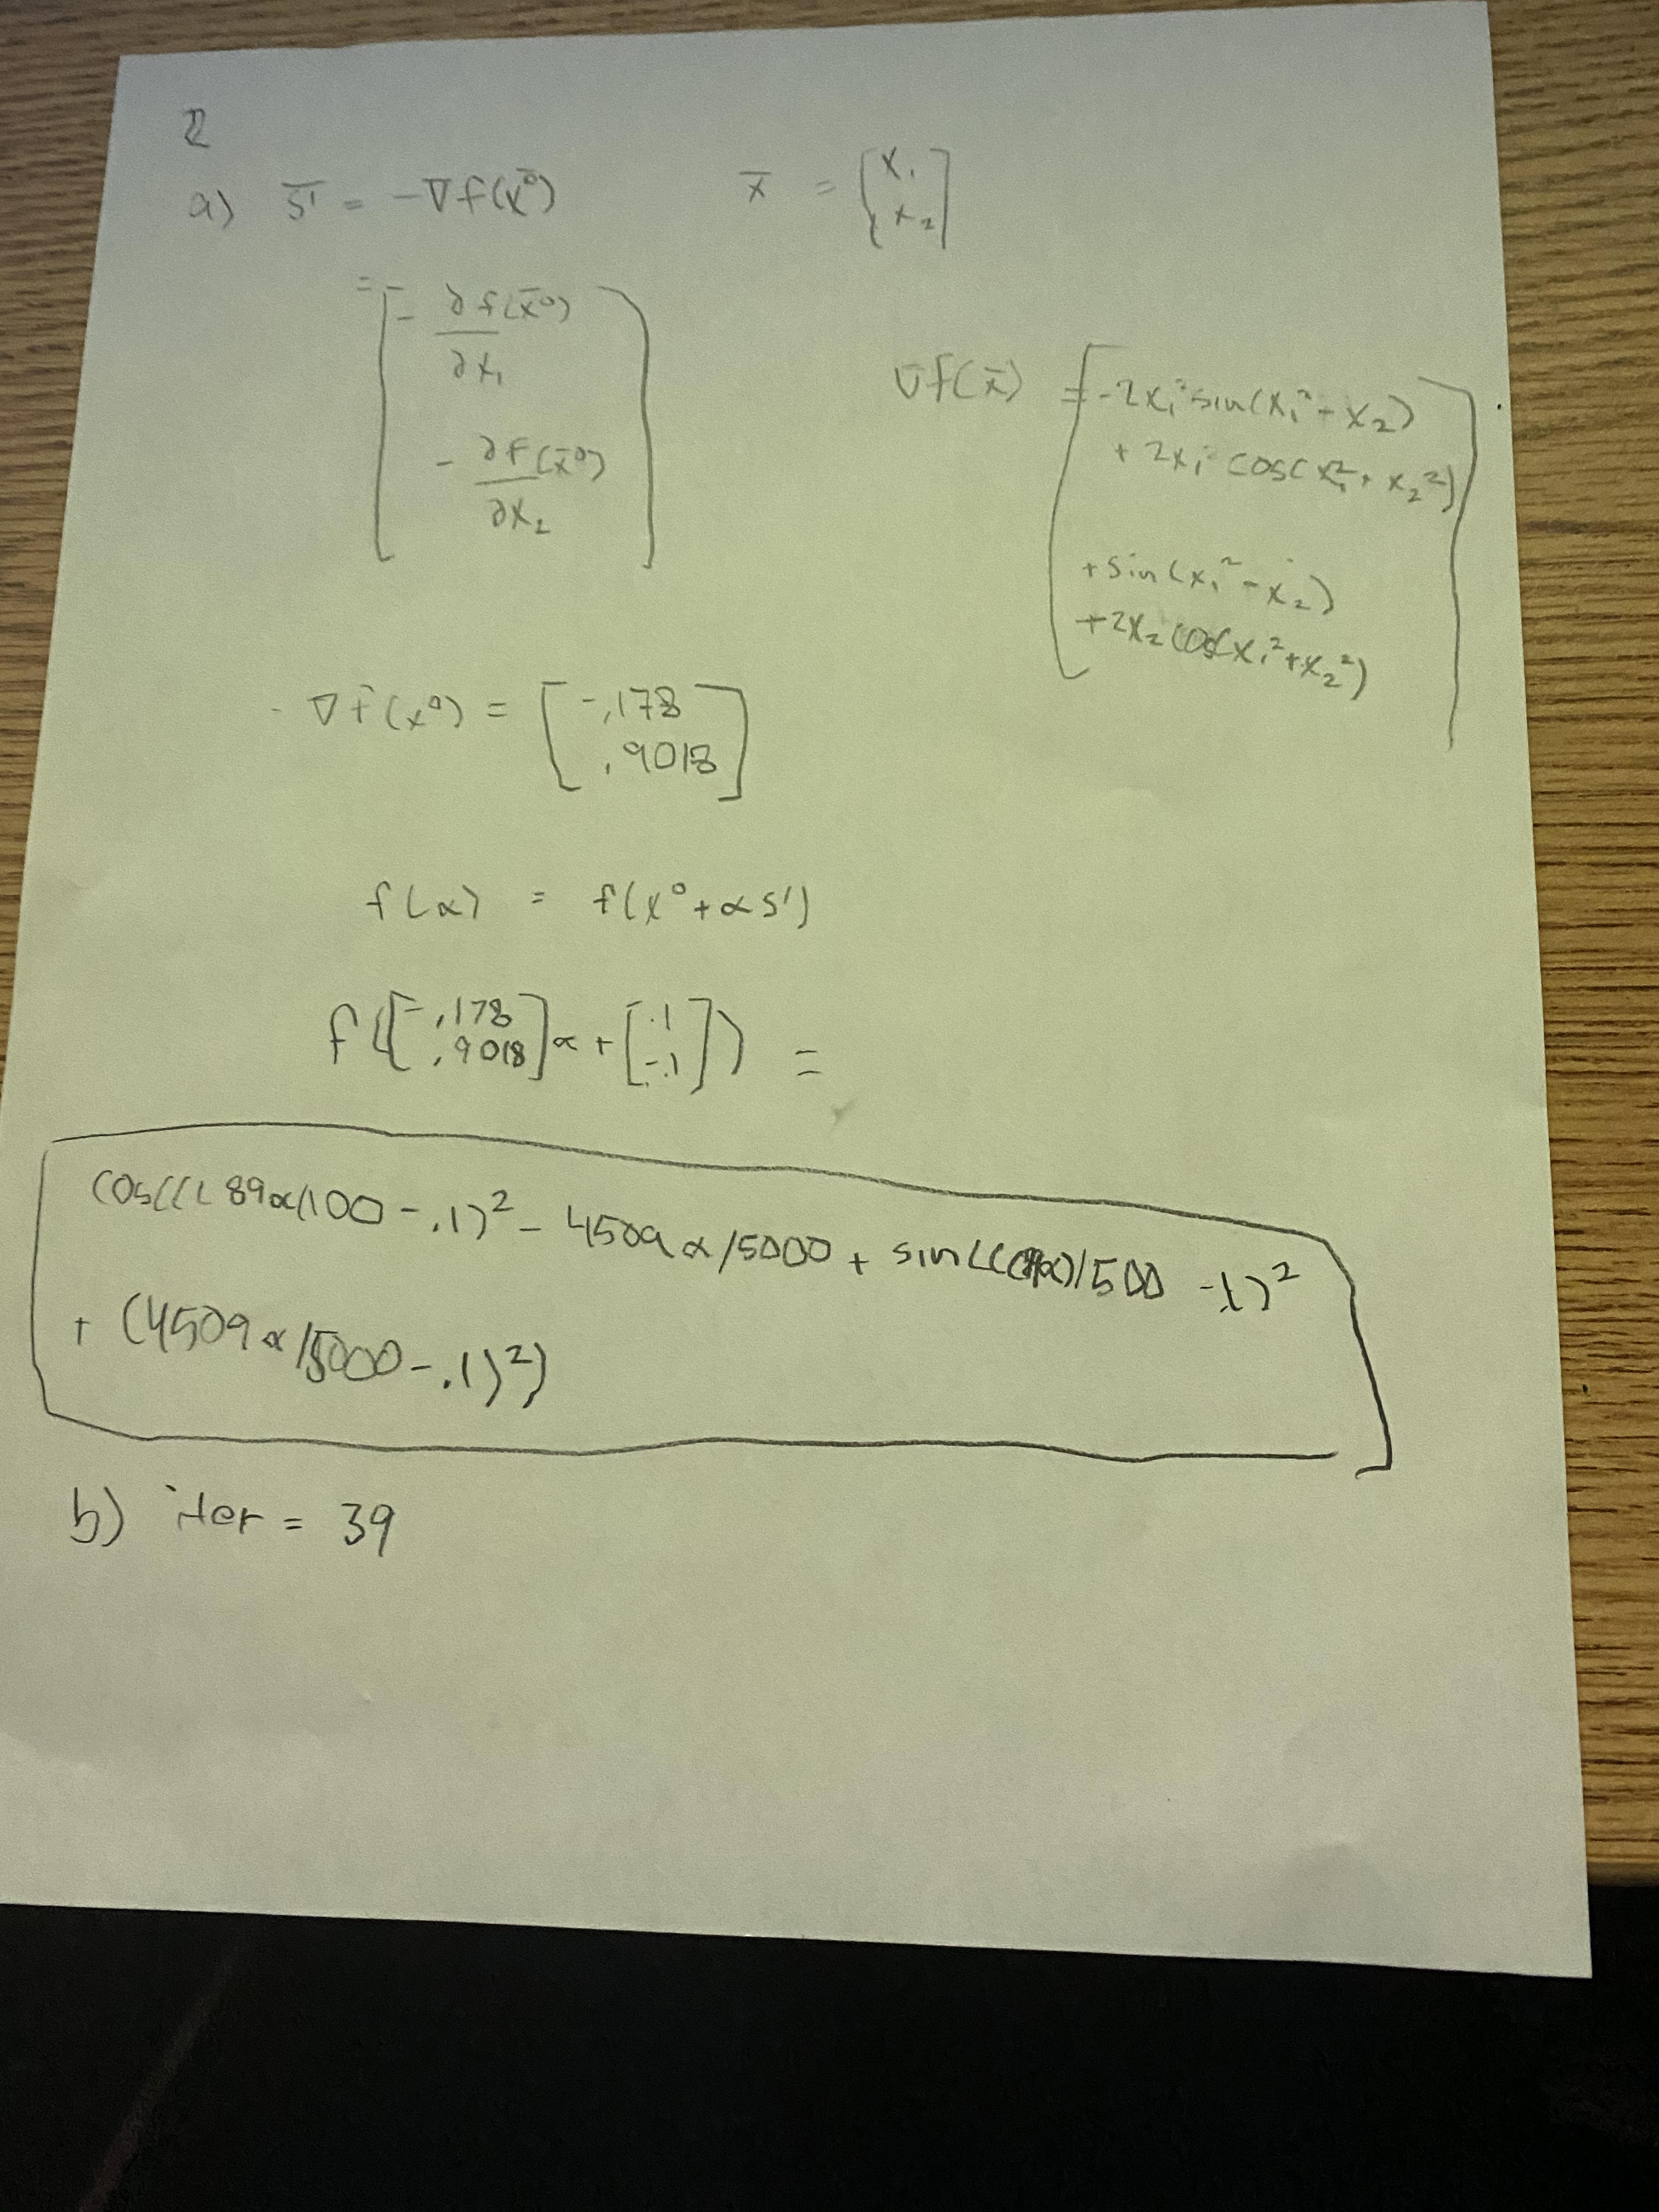 2
a) s̄¹ = -∇f(x̄⁰)    x̄ = [x₁ x₂]
= [- ∂f(x̄⁰)/∂x₁
- ∂f(x̄⁰)/∂x₂]
∇f(x̄) = [-2x₁ sin(x₁² - x₂)
+ 2x₁ cos(x₁² + x₂²)
+sin(x₁² - x₂)
+2x₂ cos(x₁² + x₂²)]
- ∇f(x⁰) = [-.178 .9018]
f(α) = f(x⁰ + αs¹)
f([-.178 .9018]α + [.1 -.1]) =
cos(((89α/100 - .1)² - 4509α/5000 + sin((( α)/500 - .1)²
+ (4509α/5000 - .1)²)
b) iter = 39